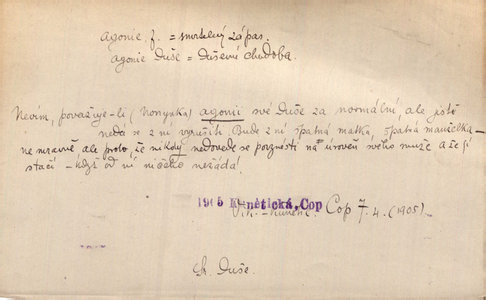 agonie, f. = smrtelný zápas.
agonie Duše = Duševní chudoba.
Nevím, považuje-li (Nonynka) agonii své Duše za normální, ale jistě
nedá se z ní vyrušiti. Bude z ní špatná matka, špatná manželka –
ne mravně ale proto, že nikdy nedovede se povznésti na úroveň svého muže a že jí
stačí – když od ní ničeho nežádá!
1905 Kunětická, Cop
Vik. - Kunětic. Cop 7. 4. (1905).
Duše.